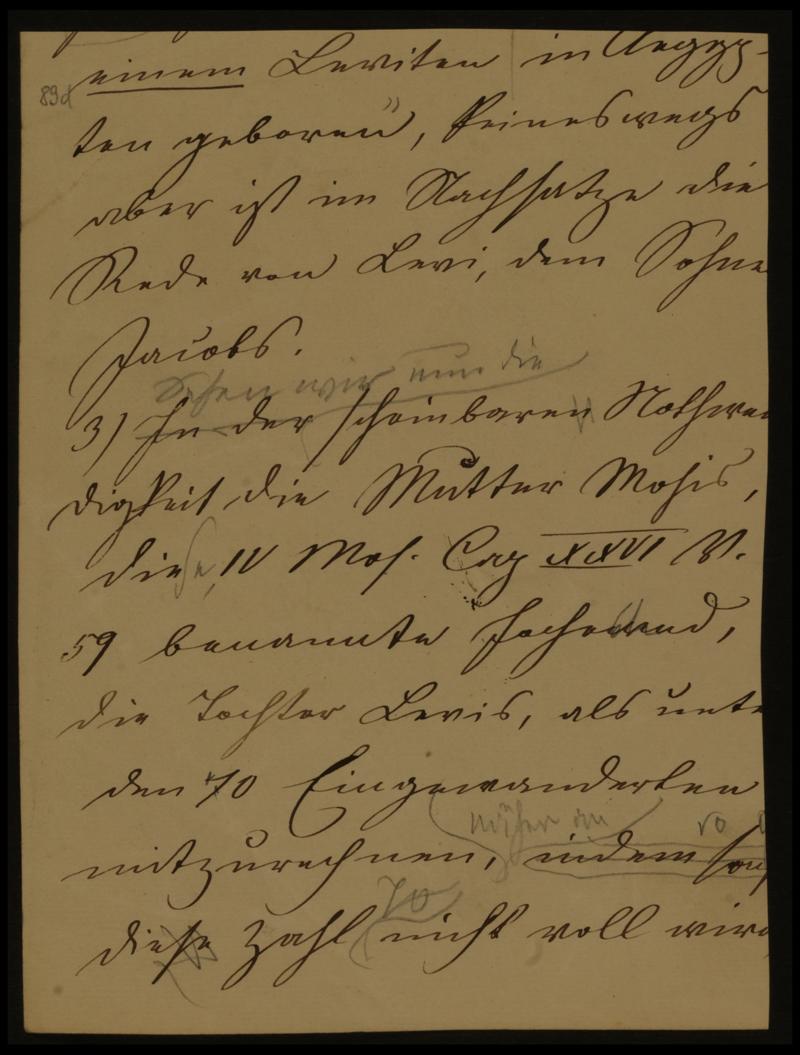 89d
einem Leviten in Aegyp-
ten geboren", keineswegs
aber ist im Nachsatze die
Rede von Levi, dem Sohne
Jacobs.
Sehen wir nun die
3) In der scheinbaren Nothwen
digkeit die Mutter Mosis,
die, IV Mos. Cap XXVI V.
59 benannte Jochewed,
die Tochter Levis, als unte
den 70 Eingewanderten
näher an so
mitzurechnen, indem son
70
diese Zahl nicht voll wird